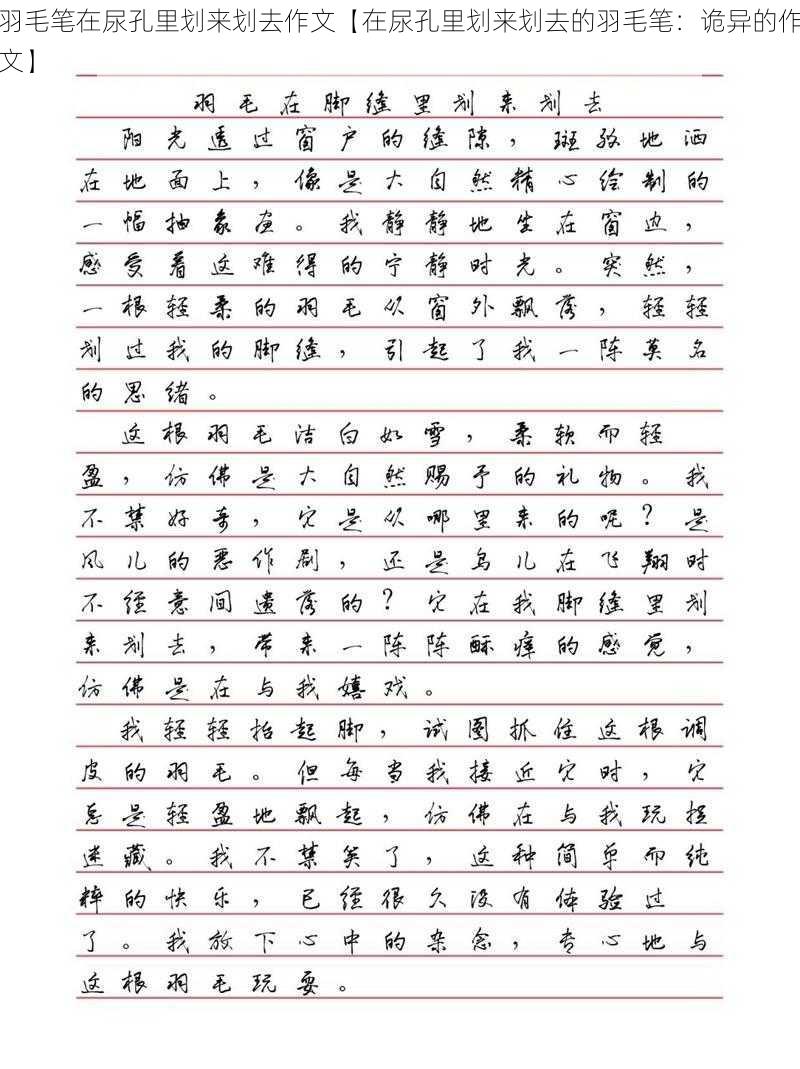 羽毛笔在尿孔里划来划去作文【在尿孔里划来划去的羽毛笔：诡异的作
文】
羽毛在脚缝里划来划去
阳光透过窗户的缝隙，斑驳地洒
在地面上，像是大自然精心绘制的
一幅抽象画。我静静地坐在窗边，
感受着这难得的宁静时光。突然，
一根轻柔的羽毛从窗外飘落，轻轻
划过我的脚缝，引起了我一阵莫名
的思绪。
这根羽毛洁白如雪，柔软而轻
盈，仿佛是大自然赐予的礼物。我
不禁好奇，它是从哪里来的呢？是
风儿的恶作剧，还是鸟儿在飞翔时
不经意间遗落的？它在我脚缝里划
来划去，带来一阵阵酥痒的感觉，
仿佛是在与我嬉戏。
我轻轻抬起脚，试图抓住这根调
皮的羽毛。但每当我接近它时，它
总是轻盈地飘起，仿佛在与我玩捉
迷藏。我不禁笑了，这种简单而纯
粹的快乐，已经很久没有体验过
了。我放下心中的杂念，专心地与
这根羽毛玩耍。